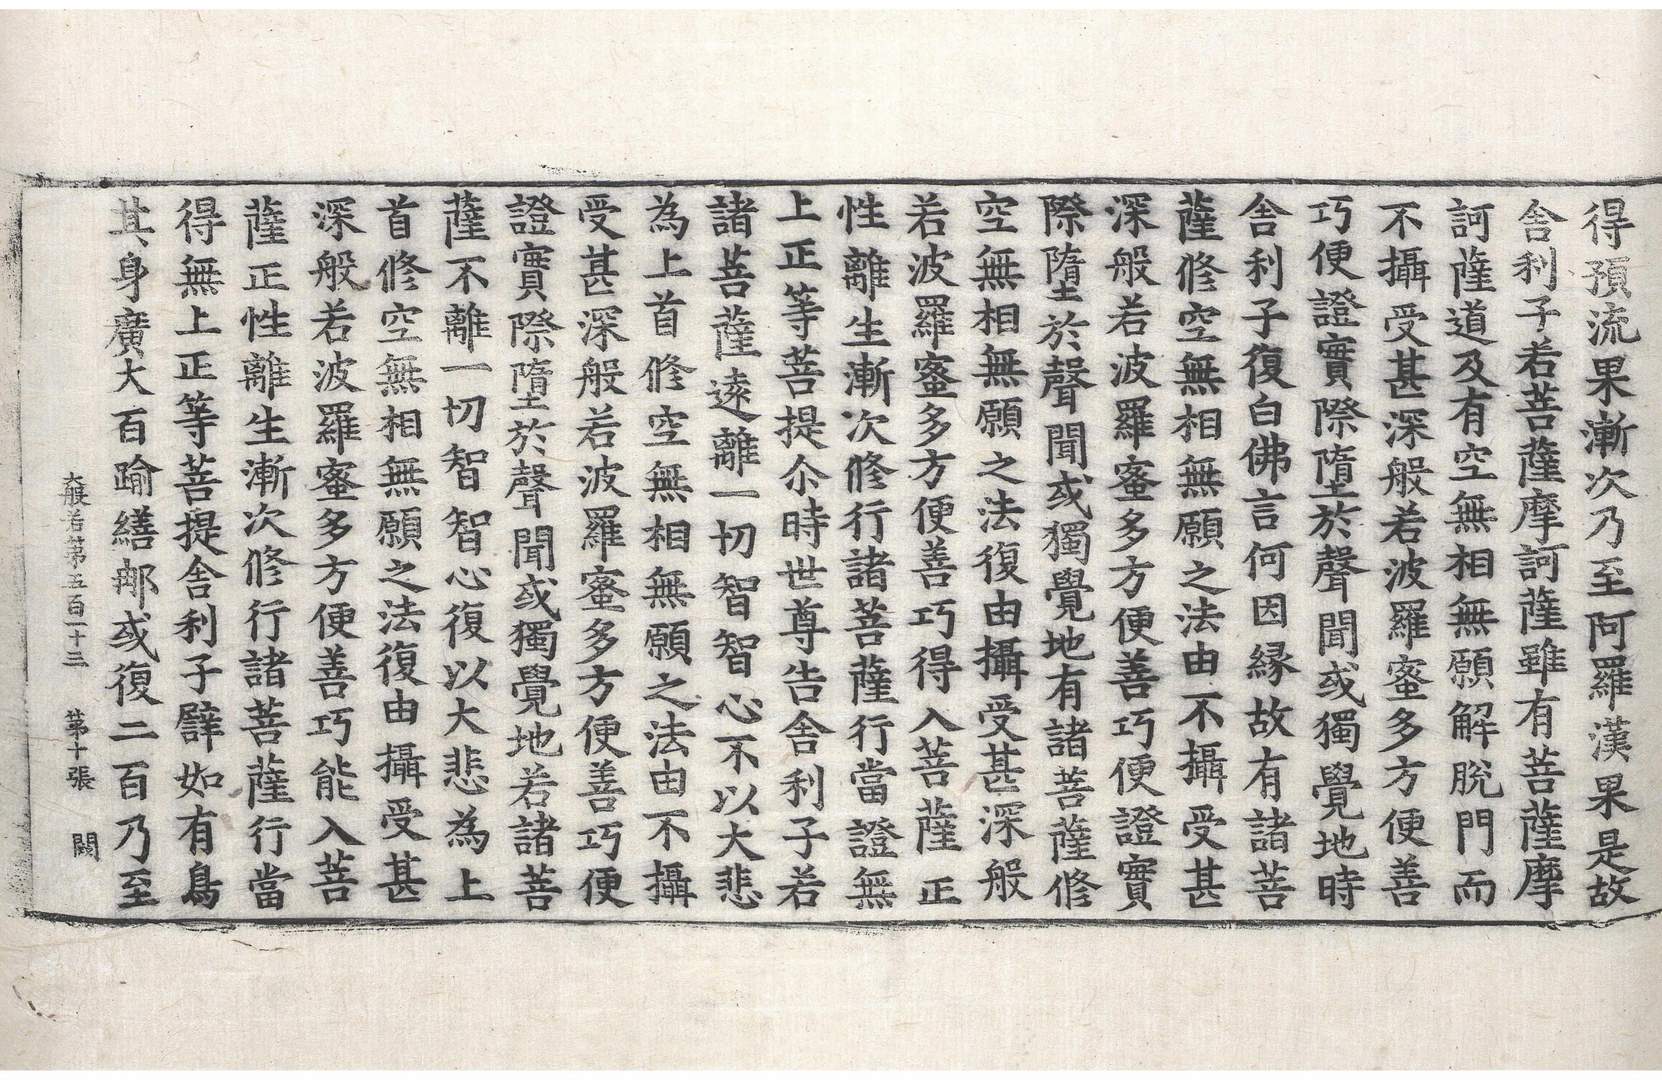 得預流果漸次乃至阿羅漢果是故
舍利子若菩薩摩訶薩雖有菩薩摩
訶薩道及有空無相無願解脫門而
不攝受甚深般若波羅蜜多方便善
巧便證實際墮於聲聞或獨覺地時
舍利子復白佛言何因縁故有諸菩
薩修空無相無願之法由不攝受甚
深般若波羅蜜多方便善巧便證實
際墮於聲聞或獨覺地有諸菩薩修
空無相無願之法復由攝受甚深般
若波羅蜜多方便善巧得入菩薩正
性離生漸次修行諸菩薩行當證無
上正等菩提尒時世尊告舍利子若
諸菩薩遠離一切智智心不以大悲
為上首修空無相無願之法由不攝
受甚深般若波羅蜜多方便善巧便
證實際墮於聲聞或獨覺地若諸菩
薩不離一切智智心復以大悲為上
首修空無相無願之法復由攝受甚
深般若波羅蜜多方便善巧能入菩
薩正性離生漸次修行諸菩薩行當
得無上正等菩提舍利子譬如有鳥
其身廣大百踰繕那或復二百乃至
大般若第五百一十三 第十張 闕